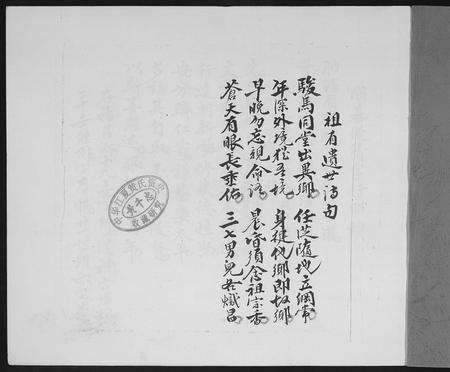 祖有遺世詩句
駿馬同堂出異鄉 任從隨地立綱常
年深外境猶吾境 身健他鄉即故鄉
早晚勿忘親命語 晨昏須念祖宗香
蒼天有眼長垂佑 三七男兒共熾昌